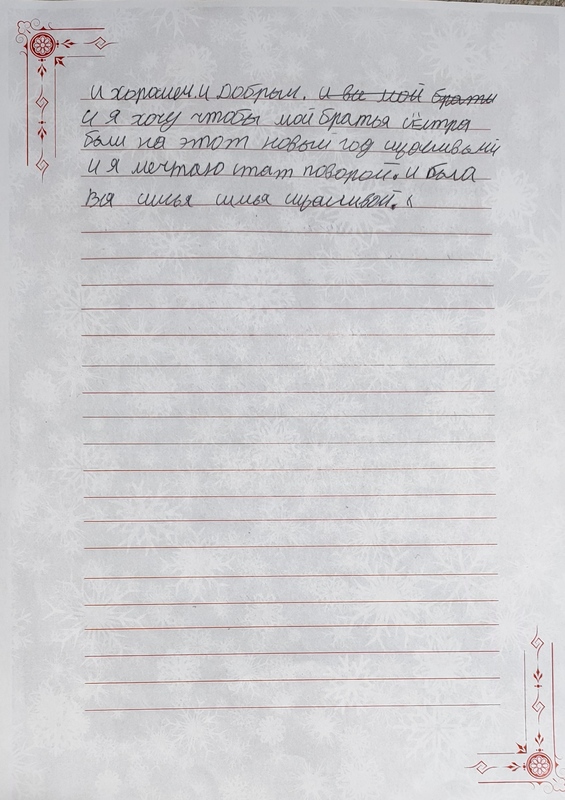 и хорошем. и Добрым. и вы мой браты
И я хочу чтобы мой братья сёстра
были на этот новый год щасливый
и я мечтаю стат поворой. и была
вся симья симья щасливой.